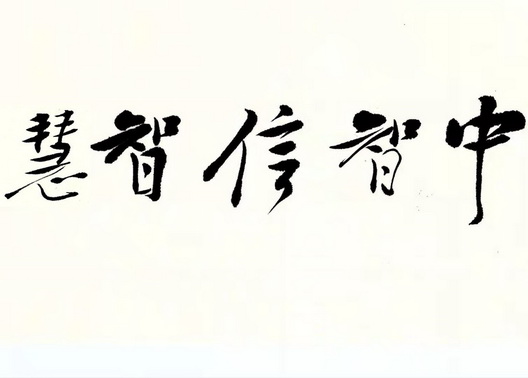 中智信智慧